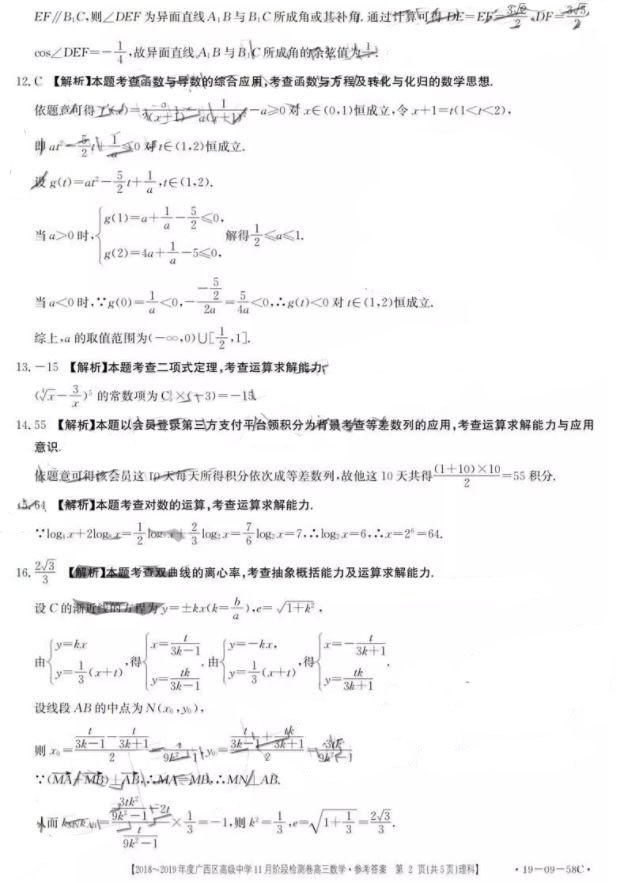 EF∥B₁C,则∠DEF为异面直线A₁B与B₁C所成角或其补角.通过计算可得DE=EF= ,DF=
cos∠DEF=-1/4,故异面直线A₁B与B₁C所成角的余弦值为
12.C 【解析】本题考查函数与导数的综合应用,考查函数与方程及转化与化归的数学思想.
依题意可得 -a≥0对x∈(0,1)恒成立,令x+1=t(1<t<2),
即at²-5/2t+1/a≤0对t∈(1,2)恒成立.
设g(t)=at²-5/2t+1/a,t∈(1,2).
当a>0时,{g(1)=a+1/a-5/2≤0, g(2)=4a+1/a-5≤0, 解得1/2≤a≤1.
当a<0时,∵g(0)=1/a<0,-(-5/2)/2a=5/4a<0,∴g(t)<0对t∈(1,2)恒成立.
综上,a的取值范围为(-∞,0)∪[1/2,1].
13.-15 【解析】本题考查二项式定理,考查运算求解能力.
的常数项为C ×(-3)=-15.
14.55 【解析】本题以会员登录第三方支付平台领积分为背景考查等差数列的应用,考查运算求解能力与应用
意识.
依题意可得该会员这10天每天所得积分依次成等差数列,故他这10天共得(1+10)×10/2=55积分.
15.64 【解析】本题考查对数的运算,考查运算求解能力.
∵log₄x+2log₈x=1/2log₂x+2/3log₂x=7/6log₂x=7,∴log₂x=6,∴x=2⁶=64.
16.2√3/3 【解析】本题考查双曲线的离心率,考查抽象概括能力及运算求解能力.
设C的渐近线的方程为y=±kx(k=b/a),e=√(1+k²),
由{y=kx y=1/3(x+t),得{x=t/(3k-1) y=tk/(3k-1),由{y=-kx, y=1/3(x+t),得{x=-t/(3k+1) y=tk/(3k+1).
设线段AB的中点为N(x₀,y₀),
则x₀=(t/(3k-1)-t/(3k+1))/2= t/(9k²-1),y₀=(tk/(3k-1)+tk/(3k+1))/2=3tk²/(9k²-1).
∵(MA+MB)⊥AB,∴MA=MB,∴MN⊥AB.
从而 ×1/3=-1,则k²=1/3,e=√(1+1/3)=2√3/3.
【2018~2019年度广西区高级中学11月阶段检测卷高三数学·参考答案 第2页(共5页)理科】 ·19-09-58C·